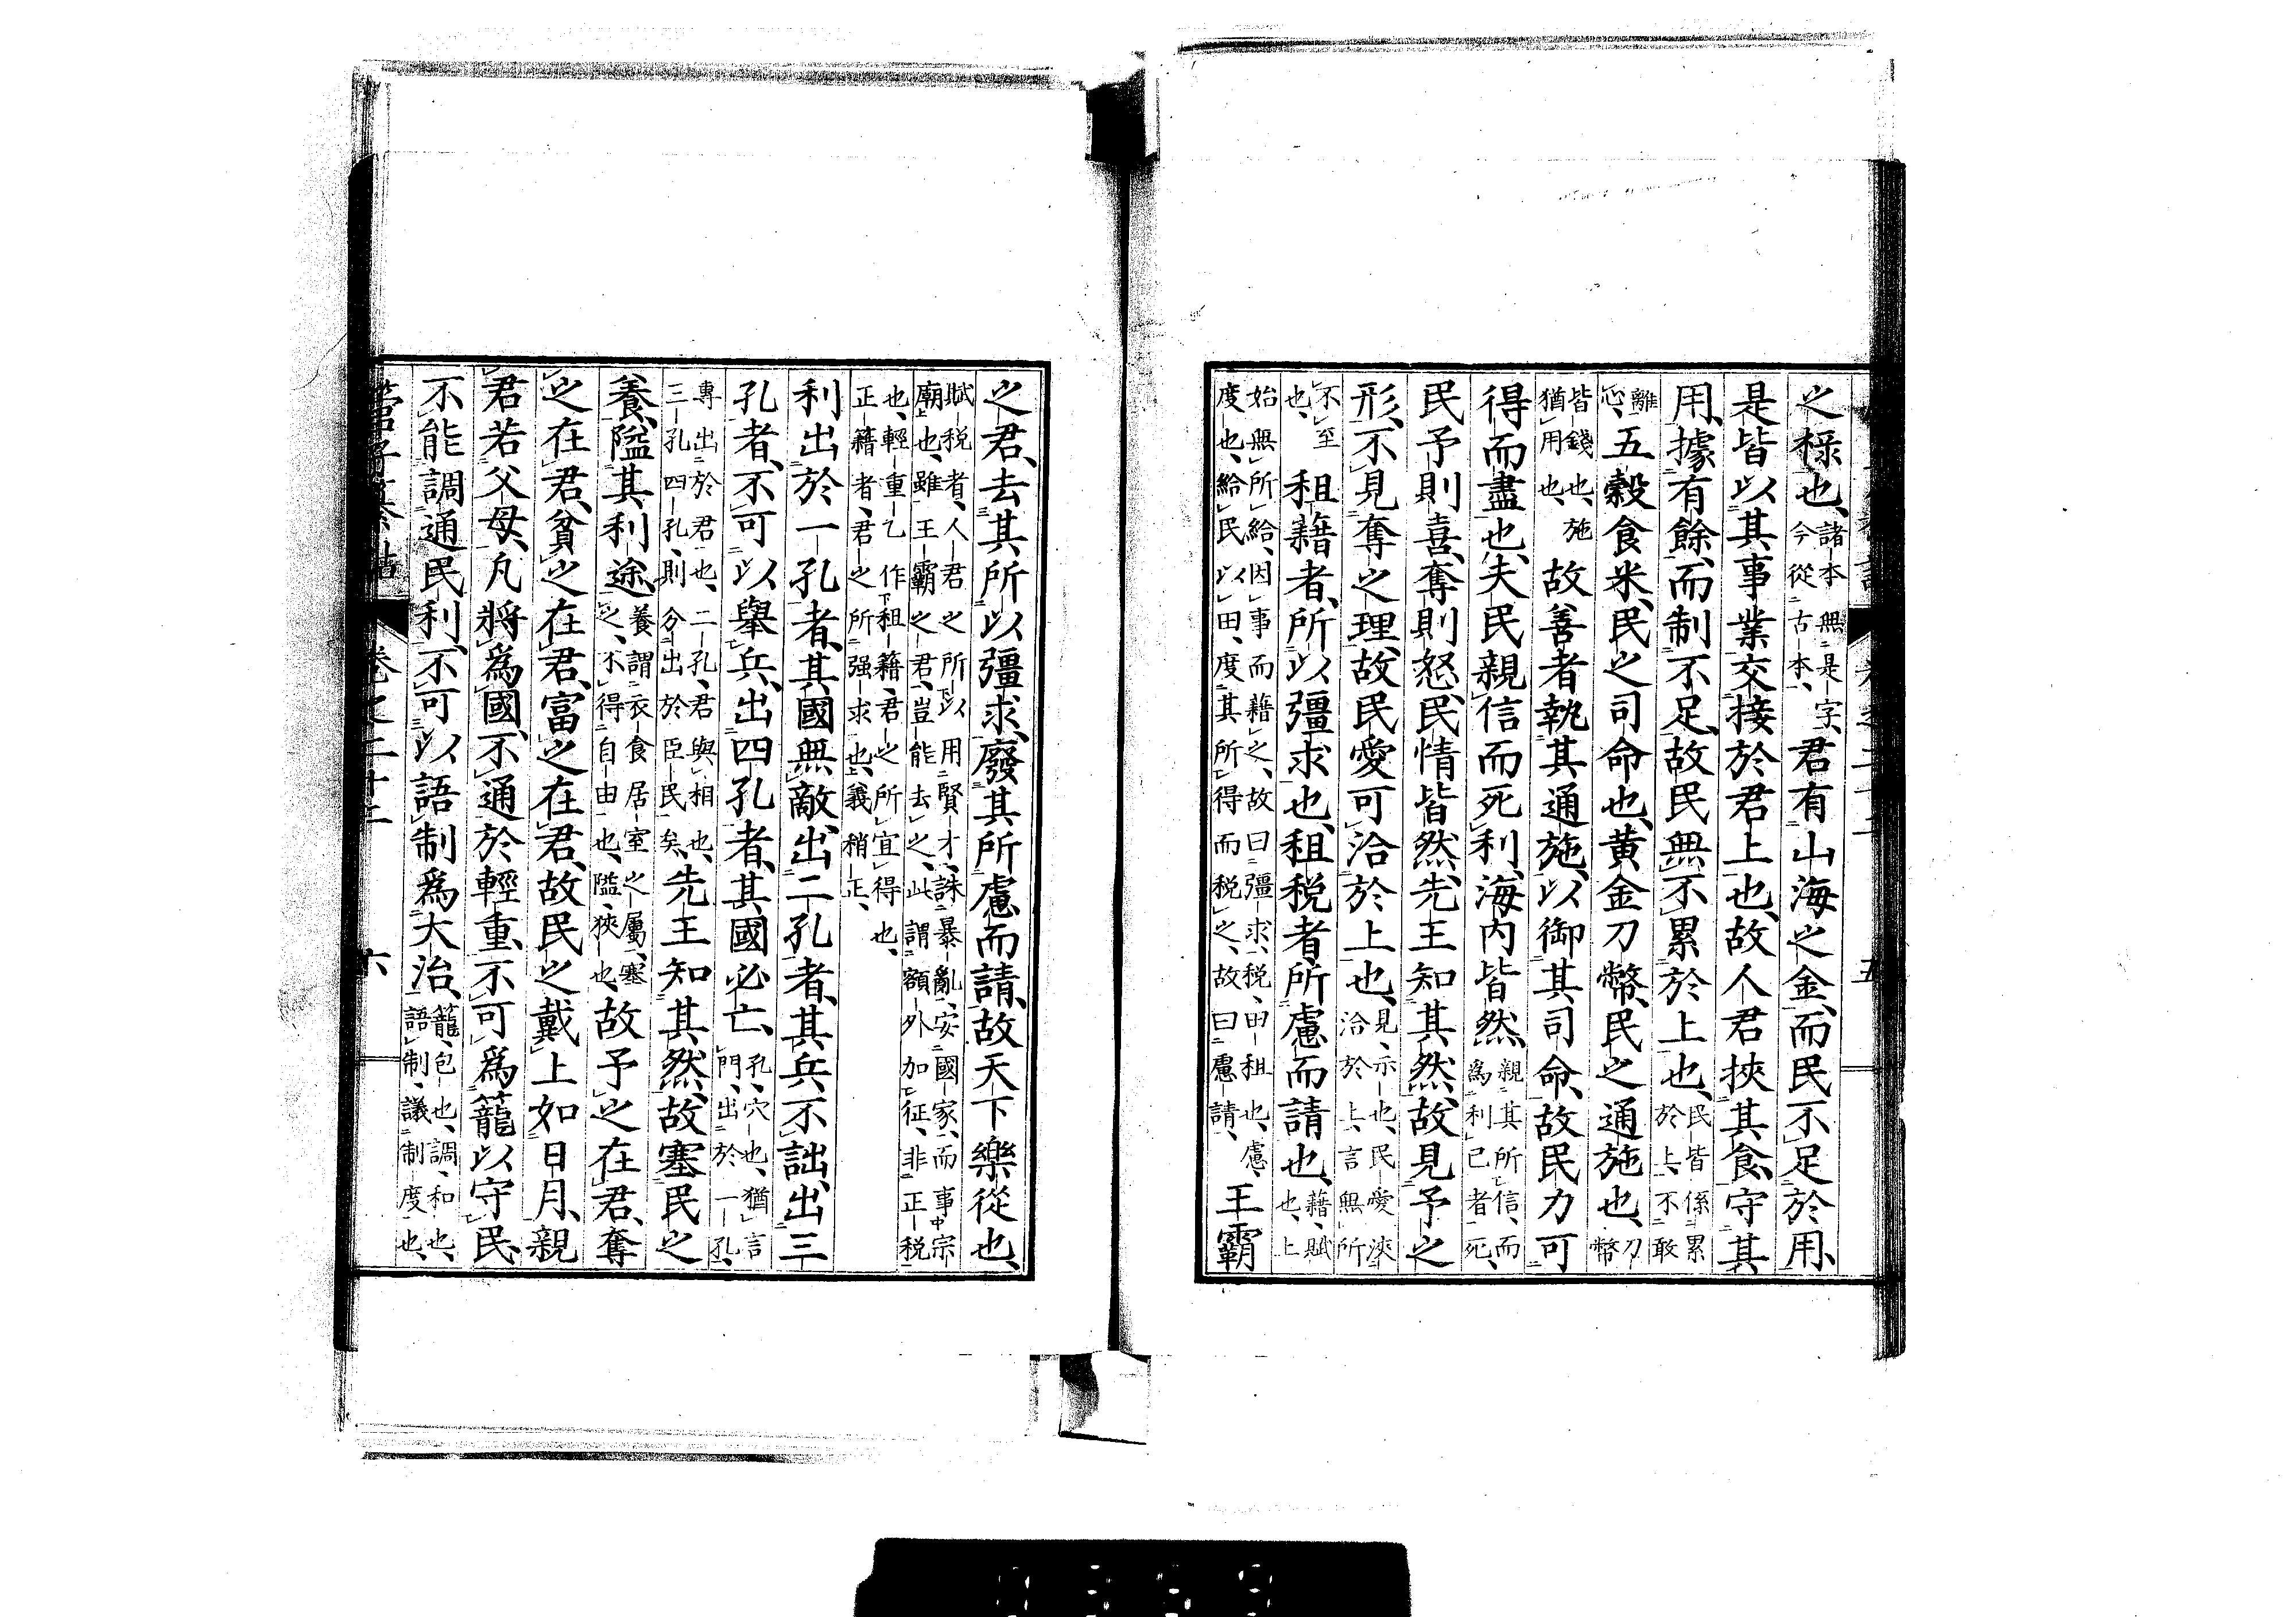 之祿也、諸本無是字、今從古本、君有山海之金、而民不足於用、
是皆以其事業交接於君上也、故人君挾其食、守其
用、據有餘、而制不足、故民無不累於上也、民皆係累於上、不敢
離心、五穀食米、民之司命也、黃金刀幣、民之通施也、刀幣
皆錢也、施猶用也、故善者執其通施、以御其司命、故民力可
得而盡也、夫民親信而死利、海內皆然、親其所信、而爲利己者死、
民予則喜、奪則怒、民情皆然、先王知其然、故見予之
形、不見奪之理、故民愛可洽於上也、見、示也、民愛浹洽於上、言無所
不至也、租藉者、所以彊求也、租稅者、所慮而請也、藉、賦也、上
始無所給、因事而藉之、故曰彊求、稅、田租也、慮、度也、給民以田、度其所得而稅之、故曰慮請、王霸
之君、去其所以彊求、廢其所慮而請、故天下樂從也、
賦稅者、人君之所以用賢才、誅暴亂、安國家、而事宗廟也、雖王霸之君、豈能去之、此謂額外加征、非正稅
也、輕重乙作租籍、君之所宜得也、正籍者、君之所强求也、義稍正、
利出於一孔者、其國無敵、出二孔者、其兵不詘、出三
孔者、不可以舉兵、出四孔者、其國必亡、孔、穴也、猶言門、出於一孔、
專出於君也、二孔、君與相也、三孔四孔、則分出於臣民矣、先王知其然、故塞民之
養、隘其利途、養謂衣食居室之屬、塞之、不得自由也、隘、狹也、故予之在君、奪
之在君、貧之在君、富之在君、故民之戴上如日月、親
君若父母、凡將爲國、不通於輕重、不可爲籠以守民、
不能調通民利、不可以語制爲大治、籠、包也、調、和也、語制、議制度也、
管子纂詁 卷之二十二 六